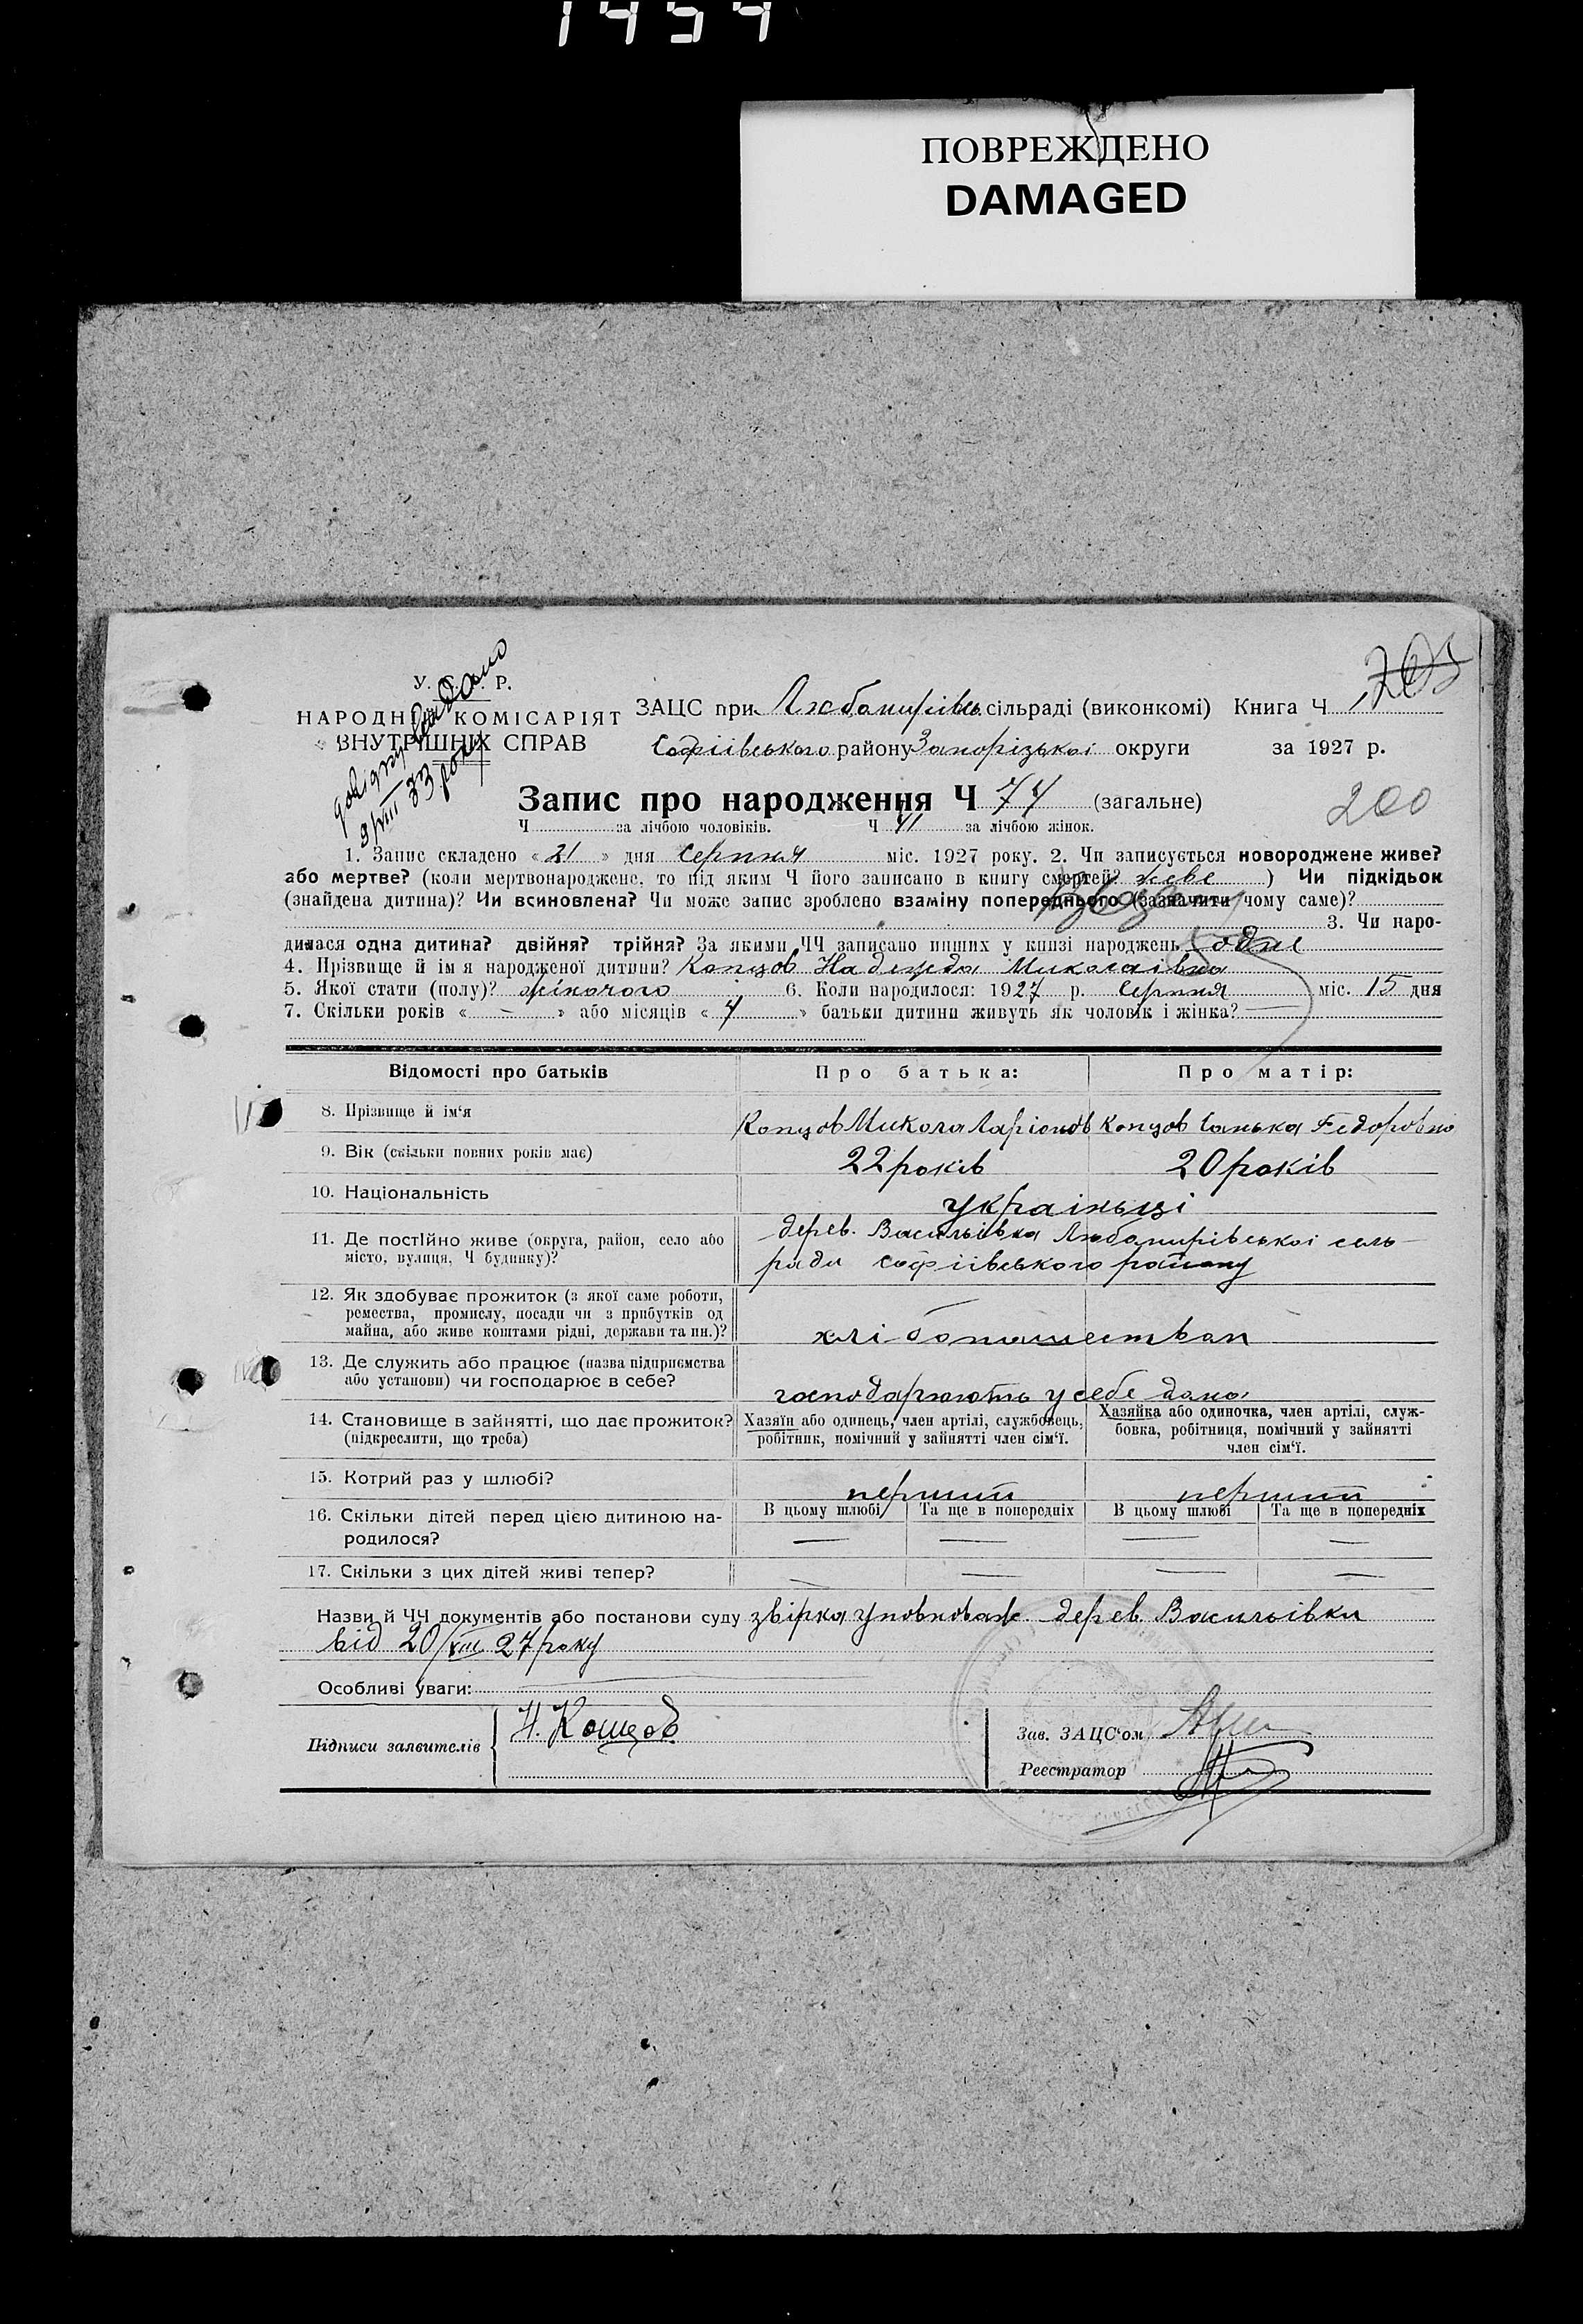 1454
ПОВРЕЖДЕНО
DAMAGED
У. С. Р.
НАРОДНІЙ КОМІСАРІЯТ
ВНУТРІШНІХ СПРАВ
довідку видано
9/VIII 33 року
703
ЗАЦС при сільраді (виконкомі) Книга Ч
Софіівського району Запорізькоі округи за 1927 р.
Запис про народження Ч 74 (загальне)
200
Ч за лічбою чоловіків. Ч 41 за лічбою жінок.
1. Запис складено « 21 » дня Серпня міс. 1927 року. 2. Чи записується новороджене живе?
або мертве? (коли мертвонароджене, то під яким Ч його записано в книгу смертей? живе ) Чи підкідьок
(знайдена дитина)? Чи всиновлена? Чи може запис зроблено взаміну попереднього (зазначити чому саме)?
3. Чи наро-
дилася одна дитина? двійня? трійня? За якими ЧЧ записано инших у книзі народжень одне
4. Прізвище й ім я народженої дитини? Концов Надежда Миколаівна
5. Якої стати (полу)? жіночого 6. Коли народилося: 1927 р. Серпня міс. 15 дня
7. Скільки років « - » або місяців « 4 » батьки дитини живуть як чоловік і жінка?
Відомості про батьків
Про батька:
Про матір:
8. Прізвище й ім‘я
Концов Микола Ларіонов
Концов Санька Федоровна
9. Вік (скільки повних років має)
22 років
20 років
10. Національність
украіньці
11. Де постійно живе (округа, район, село або
місто, вулиця, Ч будинку)?
дерев. Васильівка Любамирівськоі сель
ради софіівського району
12. Як здобуває прожиток (з якої саме роботи,
ремества, промислу, посади чи з прибутків од
майна, або живе коштами рідні, держави та ин.)?
13. Де служить або працює (назва підприємства
або установи) чи господарює в себе?
господарюють у себе дома
14. Становище в зайнятті, що дає прожиток?
(підкреслити, що треба)
Хазяїн або одинець, член артілі, службовець,
робітник, помічний у зайнятті член сім‘ї.
Хазяйка або одиночка, член артілі, служ-
бовка, робітниця, помічний у зайнятті
член сім‘ї.
15. Котрий раз у шлюбі?
перший
перший
16. Скільки дітей перед цією дитиною на-
родилося?
В цьому шлюбі
Та ще в попередніх
В цьому шлюбі
Та ще в попередніх
17. Скільки з цих дітей живі тепер?
Назви й ЧЧ документів або постанови суду звірка уповноваж. дерев. Васильівки
від 20/VIII 27 року
Особливі уваги:
Підписи заявителів
Н. Концов
Зав. ЗАЦС‘ом
Реєстратор